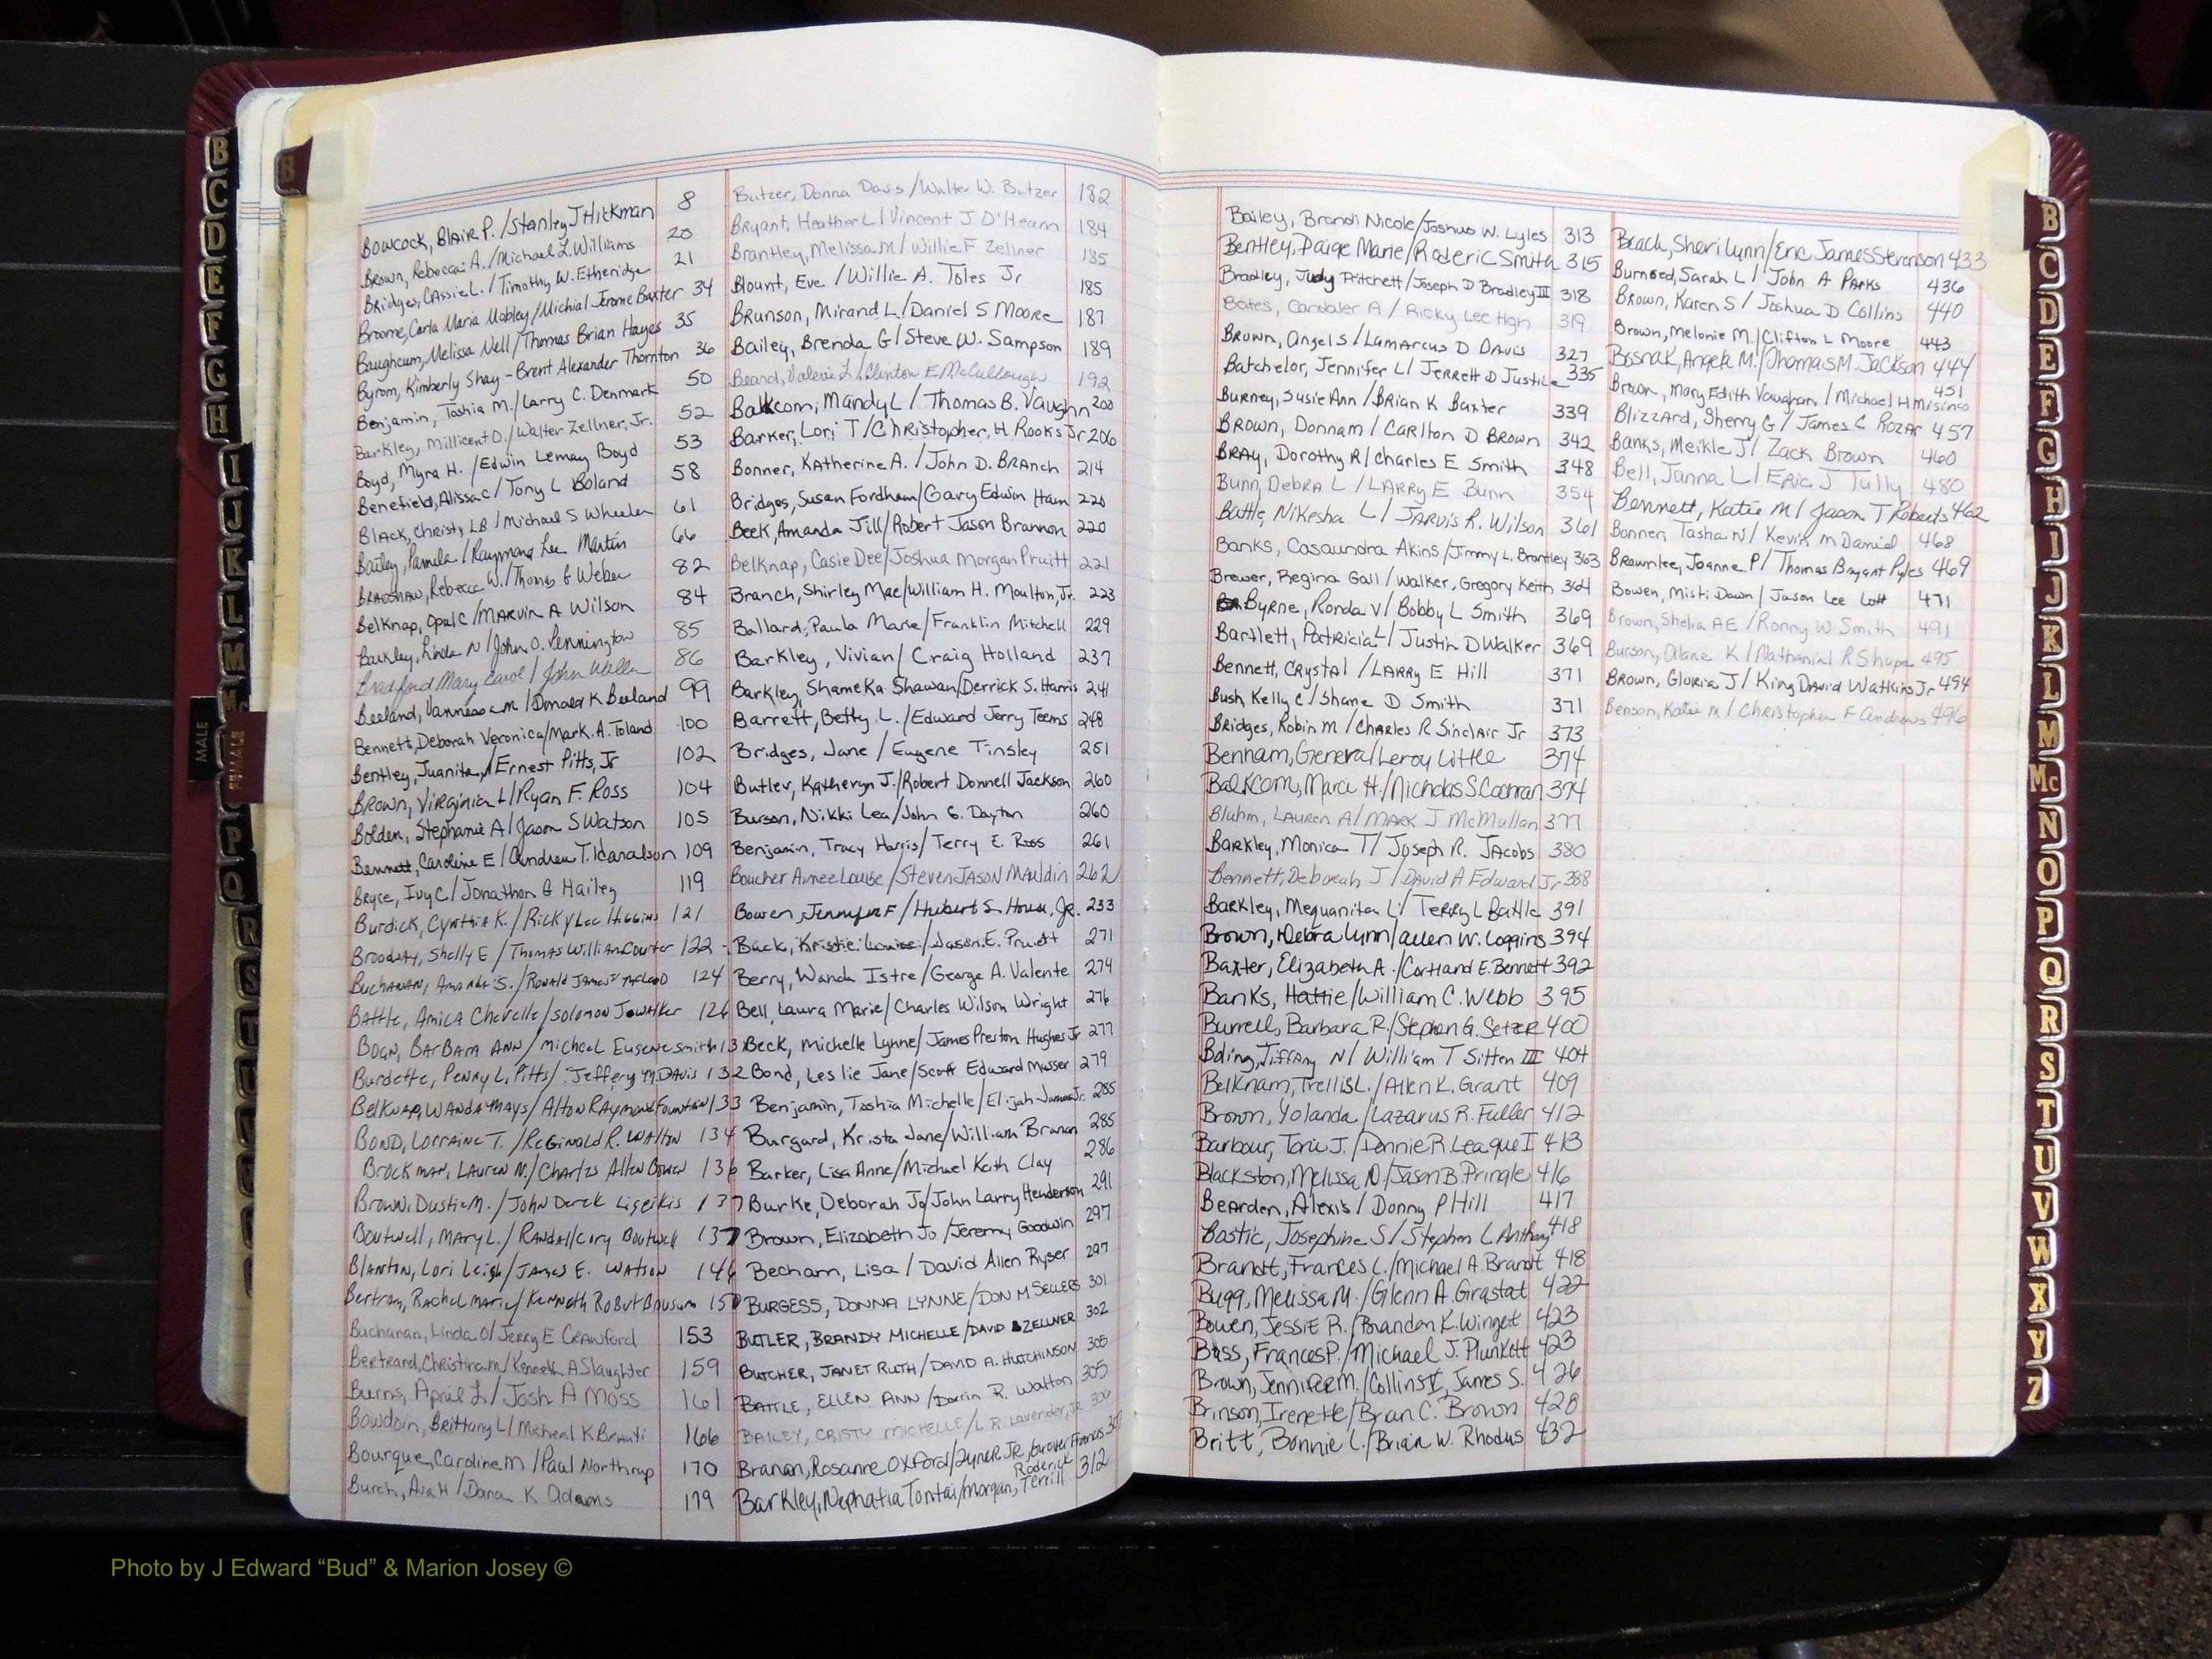 Bowcock, Blair P. / Stanley J Hickman 8
Brown, Rebecca A. / Michael L. Williams 20
Bridges, Cassie L. / Timothy W. Etheridge 21
Broome, Carla Maria Mobley / Michial Jerome Baxter 34
Baughcum, Melissa Nell / Thomas Brian Hayes 35
Byrom, Kimberly Shay - Brent Alexander Thornton 36
Benjamin, Toshia M. / Larry C. Denmark 50
Barkley, Millicent D. / Walter Zellner, Jr. 52
Boyd, Myra H. / Edwin Lemay Boyd 53
Benefield, Alissa C / Tony L Boland 58
Black, Christy LB / Michael S Wheeler 61
Bailey, Pamela / Raymond Lee Martin 66
Bradshaw, Rebecca W. / Thomas G Weber 82
Belknap, Opal C / Marvin A Wilson 84
Barkley, Linda N / John O. Pennington 85
Bradford Mary Carol / John Waller 86
Beeland, Vannessa M / Donald K Beeland 99
Bennett, Deborah Veronica / Mark A. Toland 100
Bentley, Juanita / Ernest Pitts, Jr 102
Brown, Virginia L / Ryan F. Ross 104
Bolden, Stephanie A / Jason S Watson 105
Bennett, Caroline E / Andrew T. 109
Bryce, Ivy C / Jonathon G Hailey 119
Burdick, Cynthia K. / Ricky Lee Higgins 121
Broodway, Shelly E / Thomas William Courter 122
Buchanan, Amanda S. / Ronald James McLeod 124
Battle, Amica Chevelle / Solomon J. Walker 126
Bogn, Barbara Ann / Michael Eugene Smith 13
Burdette, Penny L. Pitts / Jeffery M. Davis 132
Belknap, Wanda Mays / Alton Raymond Fountain 133
Bond, Lorraine T. / Reginald R. Walton 134
Brockman, Lauren N. / Charles Allen Bowen 136
Brown, Dustie M. / John Derek Ligeikis 137
Boutwell, Mary L. / Randall Cory Boutwell 137
Blanton, Lori Leigh / James E. Watson 146
Bertram, Rachel Marie / Kenneth Robert 150
Buchanan, Linda O / Jerry E Crawford 153
Bertrand, Christina M / Kenneth A Slaughter 159
Burns, April L / Josh A Moss 161
Bowdoin, Brittany L / Micheal K 166
Bourque, Caroline M / Paul Northrup 170
Burch, Ava H / Dana K Adams 179
Butzer, Donna Davis / Walter W. Butzer 182
Bryant, Heather L / Vincent J O'Hearn 184
Brantley, Melissa M / Willie F Zellner 185
Blount, Eve / Willie A. Toles Jr 185
Brunson, Mirand L / Daniel S Moore 187
Bailey, Brenda G / Steve W. Sampson 189
Beard, Valerie L / Clinton E McCullough 192
Balkcom, Mandy L / Thomas B. Vaughn 200
Barker, Lori T / Christopher H Rooks Jr 206
Bonner, Katherine A. / John D. Branch 214
Bridges, Susan Fordham / Gary Edwin Ham 220
Beek, Amanda Jill / Robert Jason Brannon 220
Belknap, Casie Dee / Joshua Morgan Pruitt 221
Branch, Shirley Mae / William H. Moulton, Jr. 223
Ballard, Paula Marie / Franklin Mitchell 229
Barkley, Vivian / Craig Holland 237
Barkley, Shameka Shawan / Derrick S. Harris 241
Barrett, Betty L. / Edward Jerry Teems 248
Bridges, Jane / Eugene Tinsley 251
Butler, Katheryn J. / Robert Donnell Jackson 260
Burson, Nikki Lea / John G. Dayton 260
Benjamin, Tracy Harris / Terry E. Ross 261
Boucher Aimee Louise / Steven Jason Mauldin 262
Bowen, Jennifer F / Hubert S. House, Jr. 233
Back, Kristie Louise / Jason E. Pruett 271
Berry, Wanda Istre / George A. Valente 274
Bell, Laura Marie / Charles Wilson Wright 276
Beck, Michelle Lynne / James Preston Hughes Jr 277
Bond, Leslie Jane / Scott Edward Musser 279
Benjamin, Toshia Michelle / Elijah James Jr. 285
Burgard, Krista Jane / William Branan 285
Barker, Lisa Anne / Michael Keith Clay 286
Burke, Deborah Jo / John Larry Henderson 291
Brown, Elizabeth Jo / Jeremy Goodwin 297
Becham, Lisa / David Allen Ryser 297
Burgess, Donna Lynne / Don M Sellers 301
Butler, Brandy Michelle / David Zellner 302
Butcher, Janet Ruth / David A. Hutchinson 305
Battle, Ellen Ann / Darrin R. Walton 305
Bailey, Cristy Michelle / L.R. Lavender, Jr 306
Branan, Rosanne Oxford / Zyner Jr, Grover Francis 30
Barkley, Nephatia Tontai / Morgan, Terrill Roderick 312
Bailey, Brandi Nicole / Joshua W. Lyles 313
Bentley, Paige Marie / Roderic Smith 315
Bradley, Judy Pritchett / Joseph D Bradley III 318
Bates, Candaler A / Ricky Lee High 319
Brown, Angel S / Lamarcus D Davis 327
Batchelor, Jennifer L / Jerrett D Justice 335
Burney, Susie Ann / Brian K Baxter 339
Brown, Donna M / Carlton D Brown 342
Bray, Dorothy R / Charles E Smith 348
Bunn, Debra L / Larry E Bunn 354
Battle, Nikesha L / Jarvis R. Wilson 361
Banks, Casaundra Akins / Jimmy L. Brantley 363
Brewer, Regina Gail / Walker, Gregory Keith 364
Byrne, Ronda V / Bobby L Smith 369
Bartlett, Patricia L / Justin D Walker 369
Bennett, Crystal / Larry E Hill 371
Bush, Kelly C / Shane D Smith 371
Bridges, Robin M / Charles R Sinclair Jr 373
Benham, General / Leroy Little 374
Balkcom, Marci H. / Nicholas S. Cochran 374
Bluhm, Lauren A / Mark J McMullan 377
Barkley, Monica T / Joseph R. Jacobs 380
Bennett, Deborah J / David A Edward Jr 388
Barkley, Mequanita L / Terry L Battle 391
Brown, Debra Lynn / Allen W. Loggins 394
Baxter, Elizabeth A. / Cortland E. Bennett 392
Banks, Hattie / William C. Webb 395
Burrell, Barbara R. / Stephen G. Setzer 400
Bding, Tiffany N / William T Sitten III 404
Belknam, Trellis L. / Allen L. Grant 409
Brown, Yolanda / Lazarus R. Fuller 412
Barbour, Tori J. / Donnie R League I 413
Blackston, Melissa N. / Jason B. Pringle 416
Bearden, Alexis / Donny P Hill 417
Bostic, Josephine S / Stephen L Anthony 418
Brandt, Frances L. / Michael A. Brandt 418
Bugg, Melissa M. / Glenn A. Grastat 422
Bowen, Jessie R. / Brandon K. Winget 423
Bass, Frances P. / Michael J. Plunkett 423
Brown, Jennifer M. / Collins V, James S. 426
Brinson, Irenette / Brian C. Brown 428
Britt, Bonnie L. / Brian W. Rhodus 432
Beach, Sheri Lynn / Eric James Stevenson 433
Burnsed, Sarah L / John A Parks 436
Brown, Karen S / Joshua D Collins 440
Brown, Melonie M. / Clifton L Moore 443
Bosnak, Angela M. / Thomas M. Jackson 444
Brown, Mary Edith Vaughan / Michael H Misinco 451
Blizzard, Sherry G / James C Rozar 457
Banks, Meikle J / Zack Brown 460
Bell, Janna L / Eric J Tully 480
Bennett, Katie M / Jason T Roberts 462
Bonner, Tasha N / Kevin M Daniel 468
Brownlee, Joanne P / Thomas Bryant Pyles 469
Bowen, Misti Dawn / Jason Lee Lott 471
Brown, Shelia AE / Ronny W Smith 491
Burson, Alane K / Nathanial R Shupe 495
Brown, Gloria J / King David Watkins Jr 494
Benson, Katie M / Christopher F Andrews 496
B
C
D
E
F
G
H
I
J
K
L
M
Mc
N
O
P
Q
R
S
T
U
V
W
X
Y
Z
MALE
FEMALE
Photo by J Edward “Bud” & Marion Josey ©